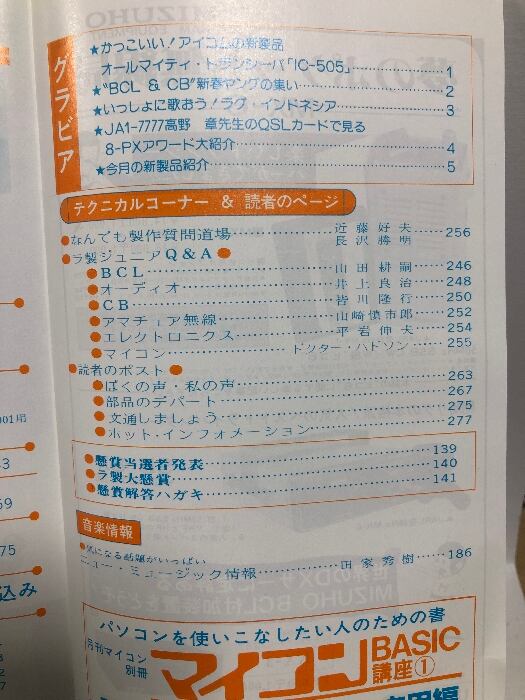 グラビア
★かっこいい!アイコムの新製品
オールマイティ・トランシーバ「IC-505」……1
★"BCL & CB"新春ヤングの集い……2
★いっしょに歌おう!ラグ・インドネシア……3
★JA1-7777高野 章先生のQSLカードで見る
8-PXアワード大紹介……4
★今月の新製品紹介……5
テクニカルコーナー & 読者のページ
●なんでも製作質問道場……近藤好夫 長沢勝明 256
●ラ製ジュニアQ&A●
●BCL……山田耕嗣……246
●オーディオ……井上良治……248
●CB……皆川隆行……250
●アマチュア無線……山崎慎市郎……252
●エレクトロニクス……平岩伸夫……254
●マイコン……ドクター・ハドソン……255
●読者のポスト●
●ぼくの声・私の声……263
●部品のデパート……267
●文通しましょう……275
●ホット・インフォメーション……277
●懸賞当選者発表……139
●ラ製大懸賞……140
●懸賞解答ハガキ……141
音楽情報
●気になる話題がいっぱい
ニュー・ミュージック情報……田家秀樹……186
パソコンを使いこなしたい人のための書
月刊マイコン別冊
マイコンBASIC講座①